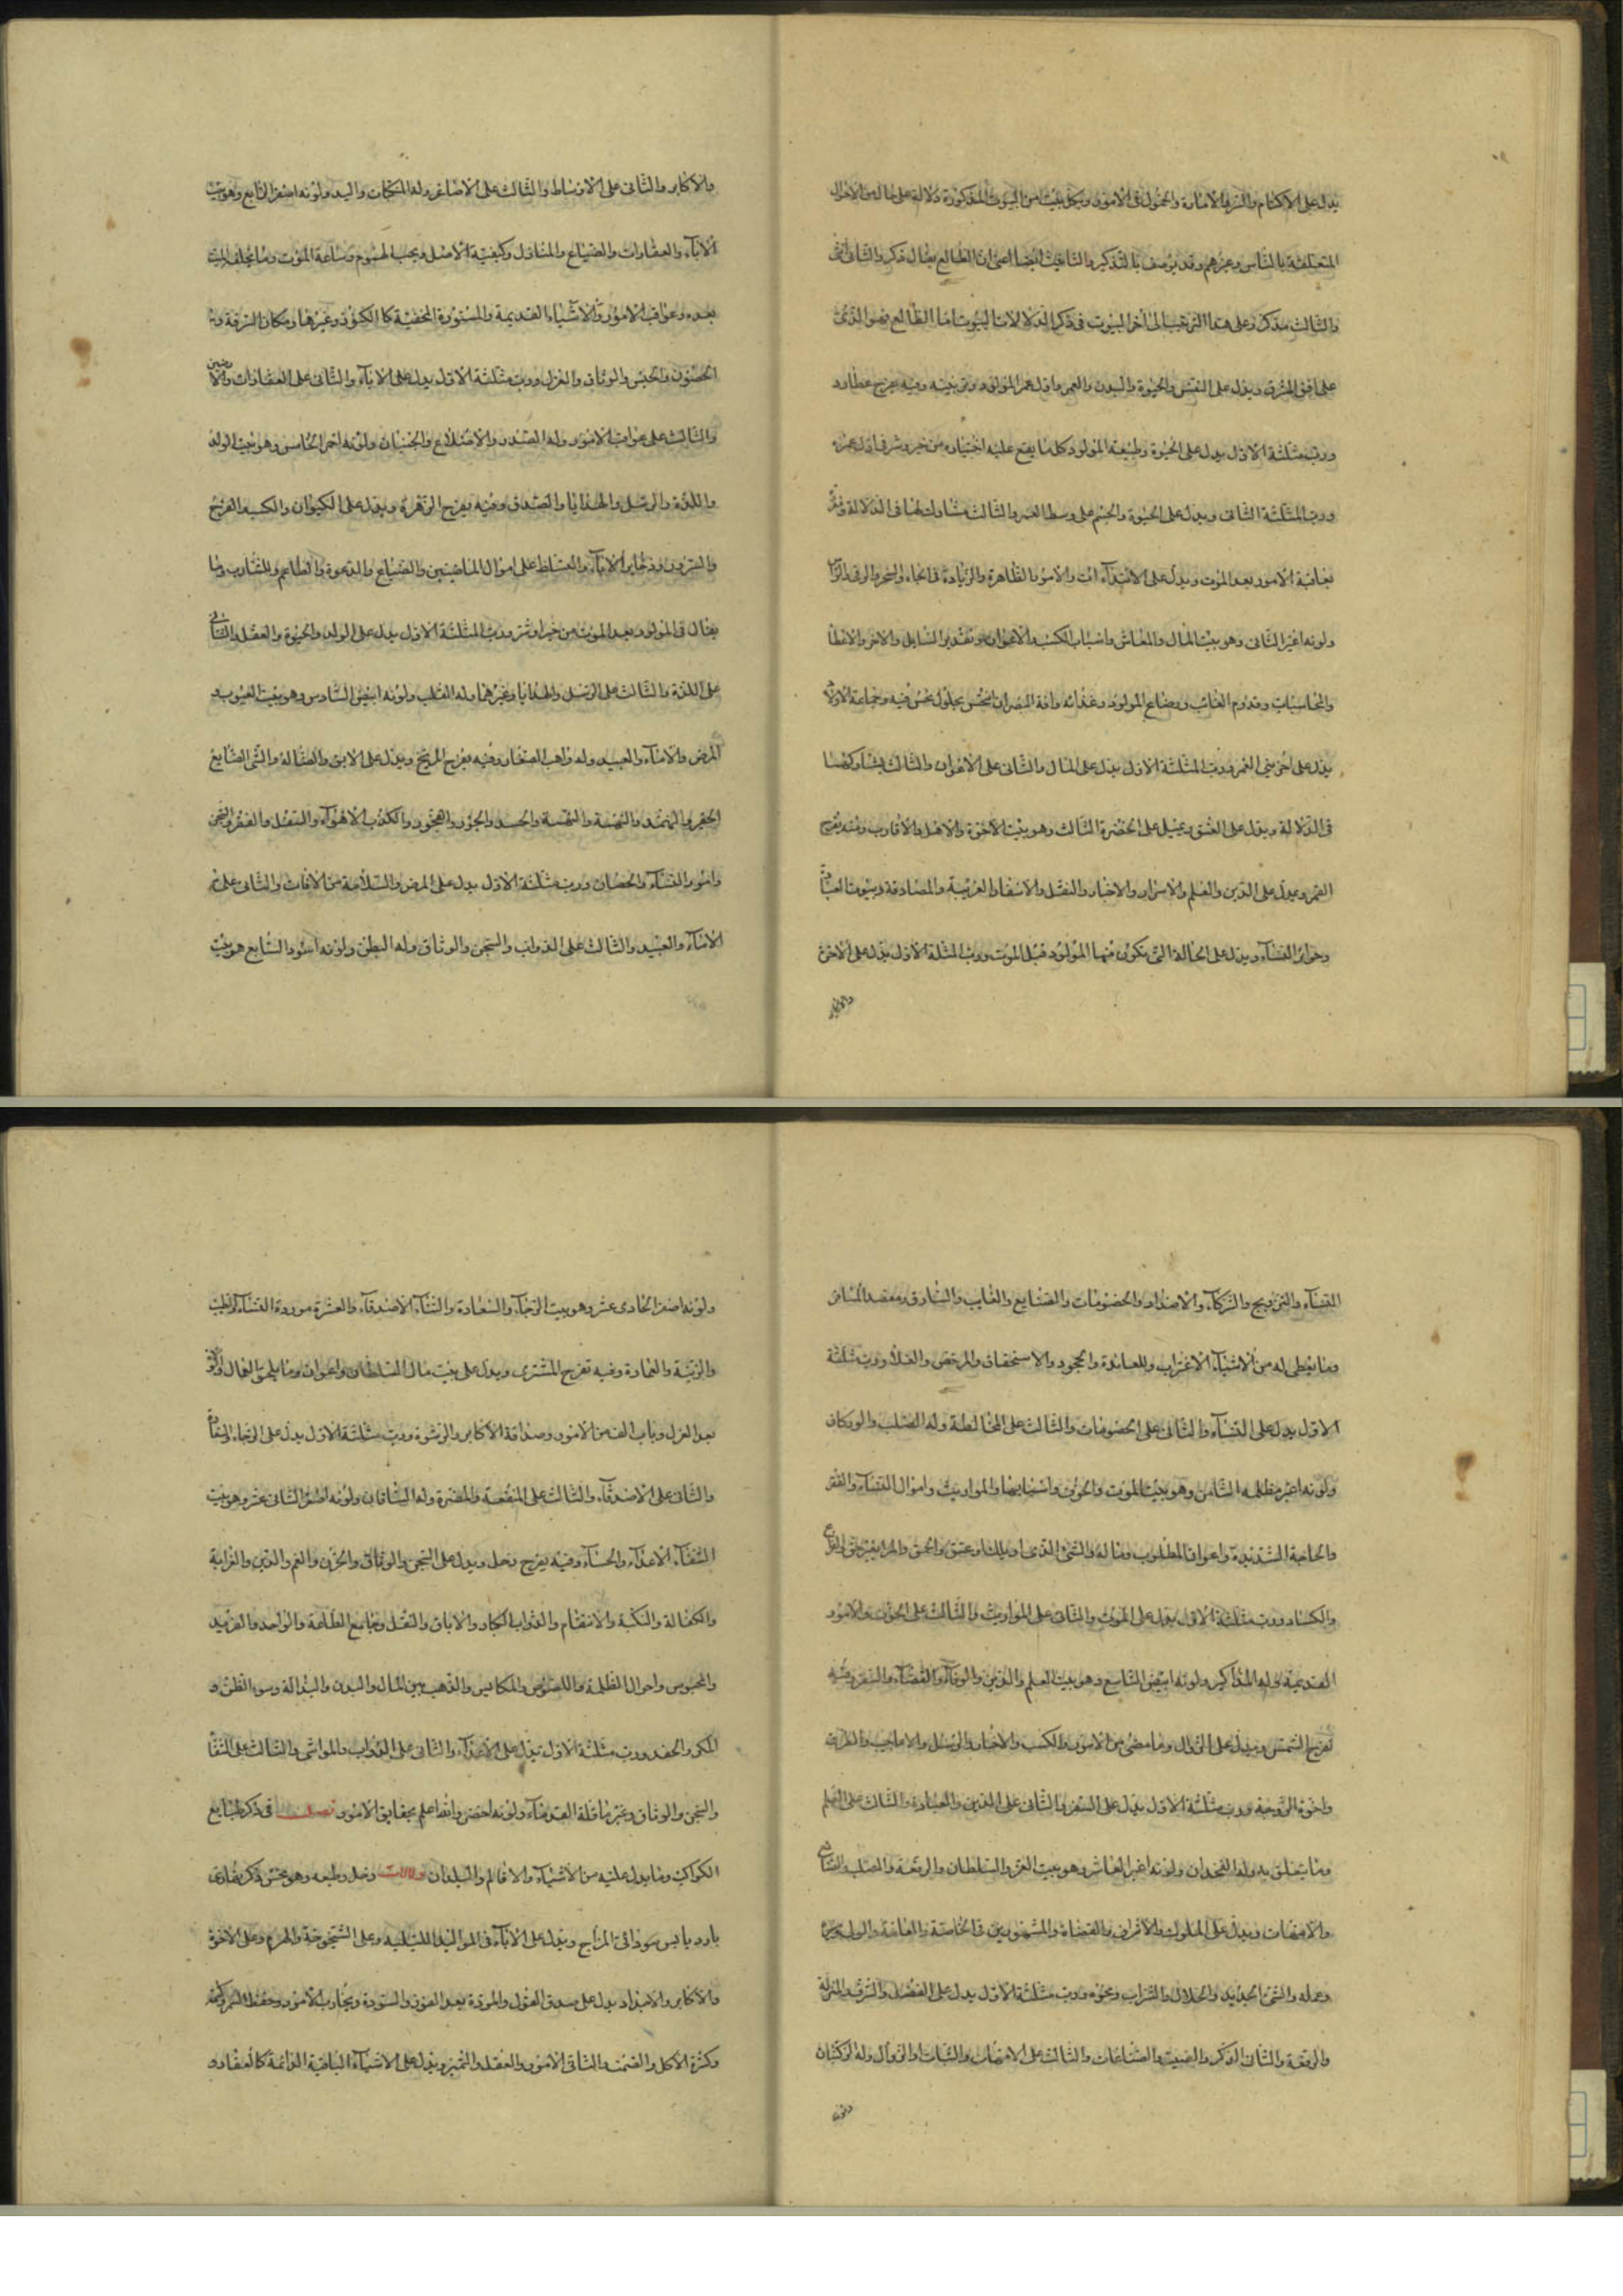 يدل على الاكتام والترف الامارة والخمول فى الامور وبكل بيت من البيوت المذكورة دلالة على حال من الاحوال
المتعلقة بالناس وغيرهم وقد يوصف بالتذكير والتانيث ايضا اعنى ان الطالع يقال ذكر والثانى انثى
والثالث مذكر وعلى هذا الترتيب الى آخر البيوت فى ذكر الدلالات البيوت اما الطالع فهو الذى
على افق المشرق ويدل على النفس والحيوة والبدن والعمر واول عمر المولود وتربيته وفيه يفرح عطارد
ورب مثلثة الاول يدل على الحيوة وطبيعة المولود كلما يقع عليه اختياره من خير وشر فى اول عمره
ورب المثلثة الثانى ويدل على الحيوة والجسم على وسط العمر والثالث مشاركتهما فى الدلالة
بعاقبة الامور بعد الموت ويدل على الابتداء ات والامور الظاهرة والزيادة فى الجاه والسحر والرقى
ولونه اغبر الثانى وهو بيت المال والمعاش واسباب الكسب والاعوان وتقدير السايل والاخذ والاعطا
والمحاسبات وقدوم الغائب ورضاع المولود وغذائه وآفة البصر ان نحس بحلول نحس فيه
يدل على آخر العمر ورب المثلثة الاول يدل على المال والثانى على الاعوان والثالث
فى الدلالة ويدل على العشق ويميل على الخضرة الثالث وهو بيت الاخوة والاهل والاقارب وفيه يفرح
القمر ويدل على الدين والعلم والاسرار والاخبار والنقل والاسفار القريبة والمصادقة وبيوت
النساء ويدل على الحالة التى يكون فيها المولود قبل الموت ورب المثلثة الاول يدل على الاخوة
والاكابر
والاكابر والثانى على الاوساط والثالث على الاصاغر وله المنكبان واليد ولونه اصفر الرابع وهو بيت
الآباء والعقارات والضياع والمنازل وكيفية الاصل ويحب الهموم وساعة الموت وما يخلف الميت
بعده وعواقب الامور والاشياء القديمة والمستورة المخفية كالكنوز وغيرها ومكان السرقة
الحصون والحبس والوثاق والعزل ورب مثلثة الاول يدل على الاباء والثانى على العقارات والارضين
والثالث على عواقب الامور وله الصدر والاضلاع والجنبان ولونه احمر الخامس وهو بيت الولد
واللذة والرسل والهدايا والصدق وفيه يفرح الزهرة ويدل على الكيوان والكسب الفرح
والسرور وذخاير الاباء والتسلط على اموال الماضيين والضياع والدعوة والطاعم والمشارب وما
يقال فى المولود بعد الموت من خير او شر ورب المثلثة الاول يدل على الولد والحيوة والعقل والثانى
على اللذة والثالث على الرسل والهدايا وغيرهما وله القلب ولونه ابيض السادس وهو بيت العيوب و
المرض والاماء والعبيد وفيه يفرح المريخ ويدل على الابق والضالة والشى الضايع
الحقير والتهمة والحسد والجور والفجور والكذب الاهواء والنقل والفقر والسجن
وامور النساء والخصيان ورب مثلثة الاول يدل على المرض والسلامة من الافات والثانى على
الاماء والعبيد والثالث على الدواب والسجن والوثاق وله البطن ولونه اسود السابع هو بيت
النساء والتزويج والشركاء والاضداد والخصومات والضايع والغايب والسارق ومقصد المسافر
وما يعطى له من الاشياء الاغتراب والمعاندة والجحود والاستحقاق والرخص والغلا ورب مثلثة
الاول يدل على النساء والثانى على الخصومات والثالث على المخالطة وله الصلب والوركان
ولونه اغبر مظلم الثامن وهو بيت الموت والخوف واسبابهما والمواريث واموال النساء والفقر
والحاجة الشديدة واعوان المطلوب وماله والشى الذى او يملك او عتيق والحمق
والكساد ورب مثلثة الاول يدل على الموت والثانى على المواريث والثالث على الخوف والامور
القديمة وله المذاكير ولونه ابيض التاسع وهو بيت العلم والدين والوفاء والقضاء والسفر وفيه
تفرح الشمس ويدل على الزوال وما مضى من الامور والكتب والاخبار والرسل والاعاجيب والطرق
واخوة الزوجة ورب مثلثة الاول يدل على السفر والثانى على الدين والعبادة والثالث على العلم
وما يتعلق به وله الفخذان ولونه اغبر العاشر وهو بيت العز والسلطان والرفعة والصلب
والامهات ويدل على الملوك والاشراف والقضاة والمشهورين فى الخاصة والعامة والوالى
وعمله والشى الجديد والحلال والشراب ونحوه ورب مثلثة الاول يدل على الفضل والشرف المنزلة
والرفعة والثانى الذكر والصيت والصناعات والثالث على الامهات والثبات او الزوال وله الركبتان
ولونه
ولونه اصفر الحادى عشر وهو بيت الرجاء والسعادة والثناء الاصدقاء والعشرة مودة النساء
والزينة والعمارة وفيه تفرح المشترى ويدل على بيت مال السلطان واعوان وما يلحق العمال
بعد العزل وباب الف من الامور وصداقة الاكابر والرشوة ورب مثلثة الاول يدل على الرجاء
والثانى على الاصدقاء والثالث على المنفعة والمضرة وله الساقان ولونه اصفر الثانى عشر وهو بيت
الشقاء الاعداء والحساد وفيه يفرح زحل ويدل على السجن والوثاق والحزن والغم والدين والغرامة
والكفالة والنكبة والانتقام والدواب الكبار والاباق والنقل وجامع الطاعة والواحد والفريد
والمحبوس واحوال الظلمة واللصوص والمكايس والذهب بين المال والبدن والبذالة وسوء الظن و
المكر والحقد ورب مثلثة الاول يدل على الاعداء والثانى على الدواب والمواشى والثالث على الشقا
والسجن والوثاق وغيرها وله القدماء ولونه اخضر والله اعلم بحقايق الامور فصل فى ذكر طبايع
الكواكب وما يدل عليه من الاشياء والاقاليم والبلدان دلالات زحل وطبعه وهو نحس ذكر نهارى
بارد يابس سوداوى المزاج ويدل على الآباء فى المواليد الليلية وعلى الشيخوخة والهرم وعلى الاخوة
والاكابر والاجداد يدل على صدق القول والمودة بعد الفوز والستودة وتجارب الامور وحفظ السر وكتمه
وكثرة الاكل والصمت والثانى الامور والعقل والتميز ويدل على الاشياء الباقية الدائمة كالعقار و